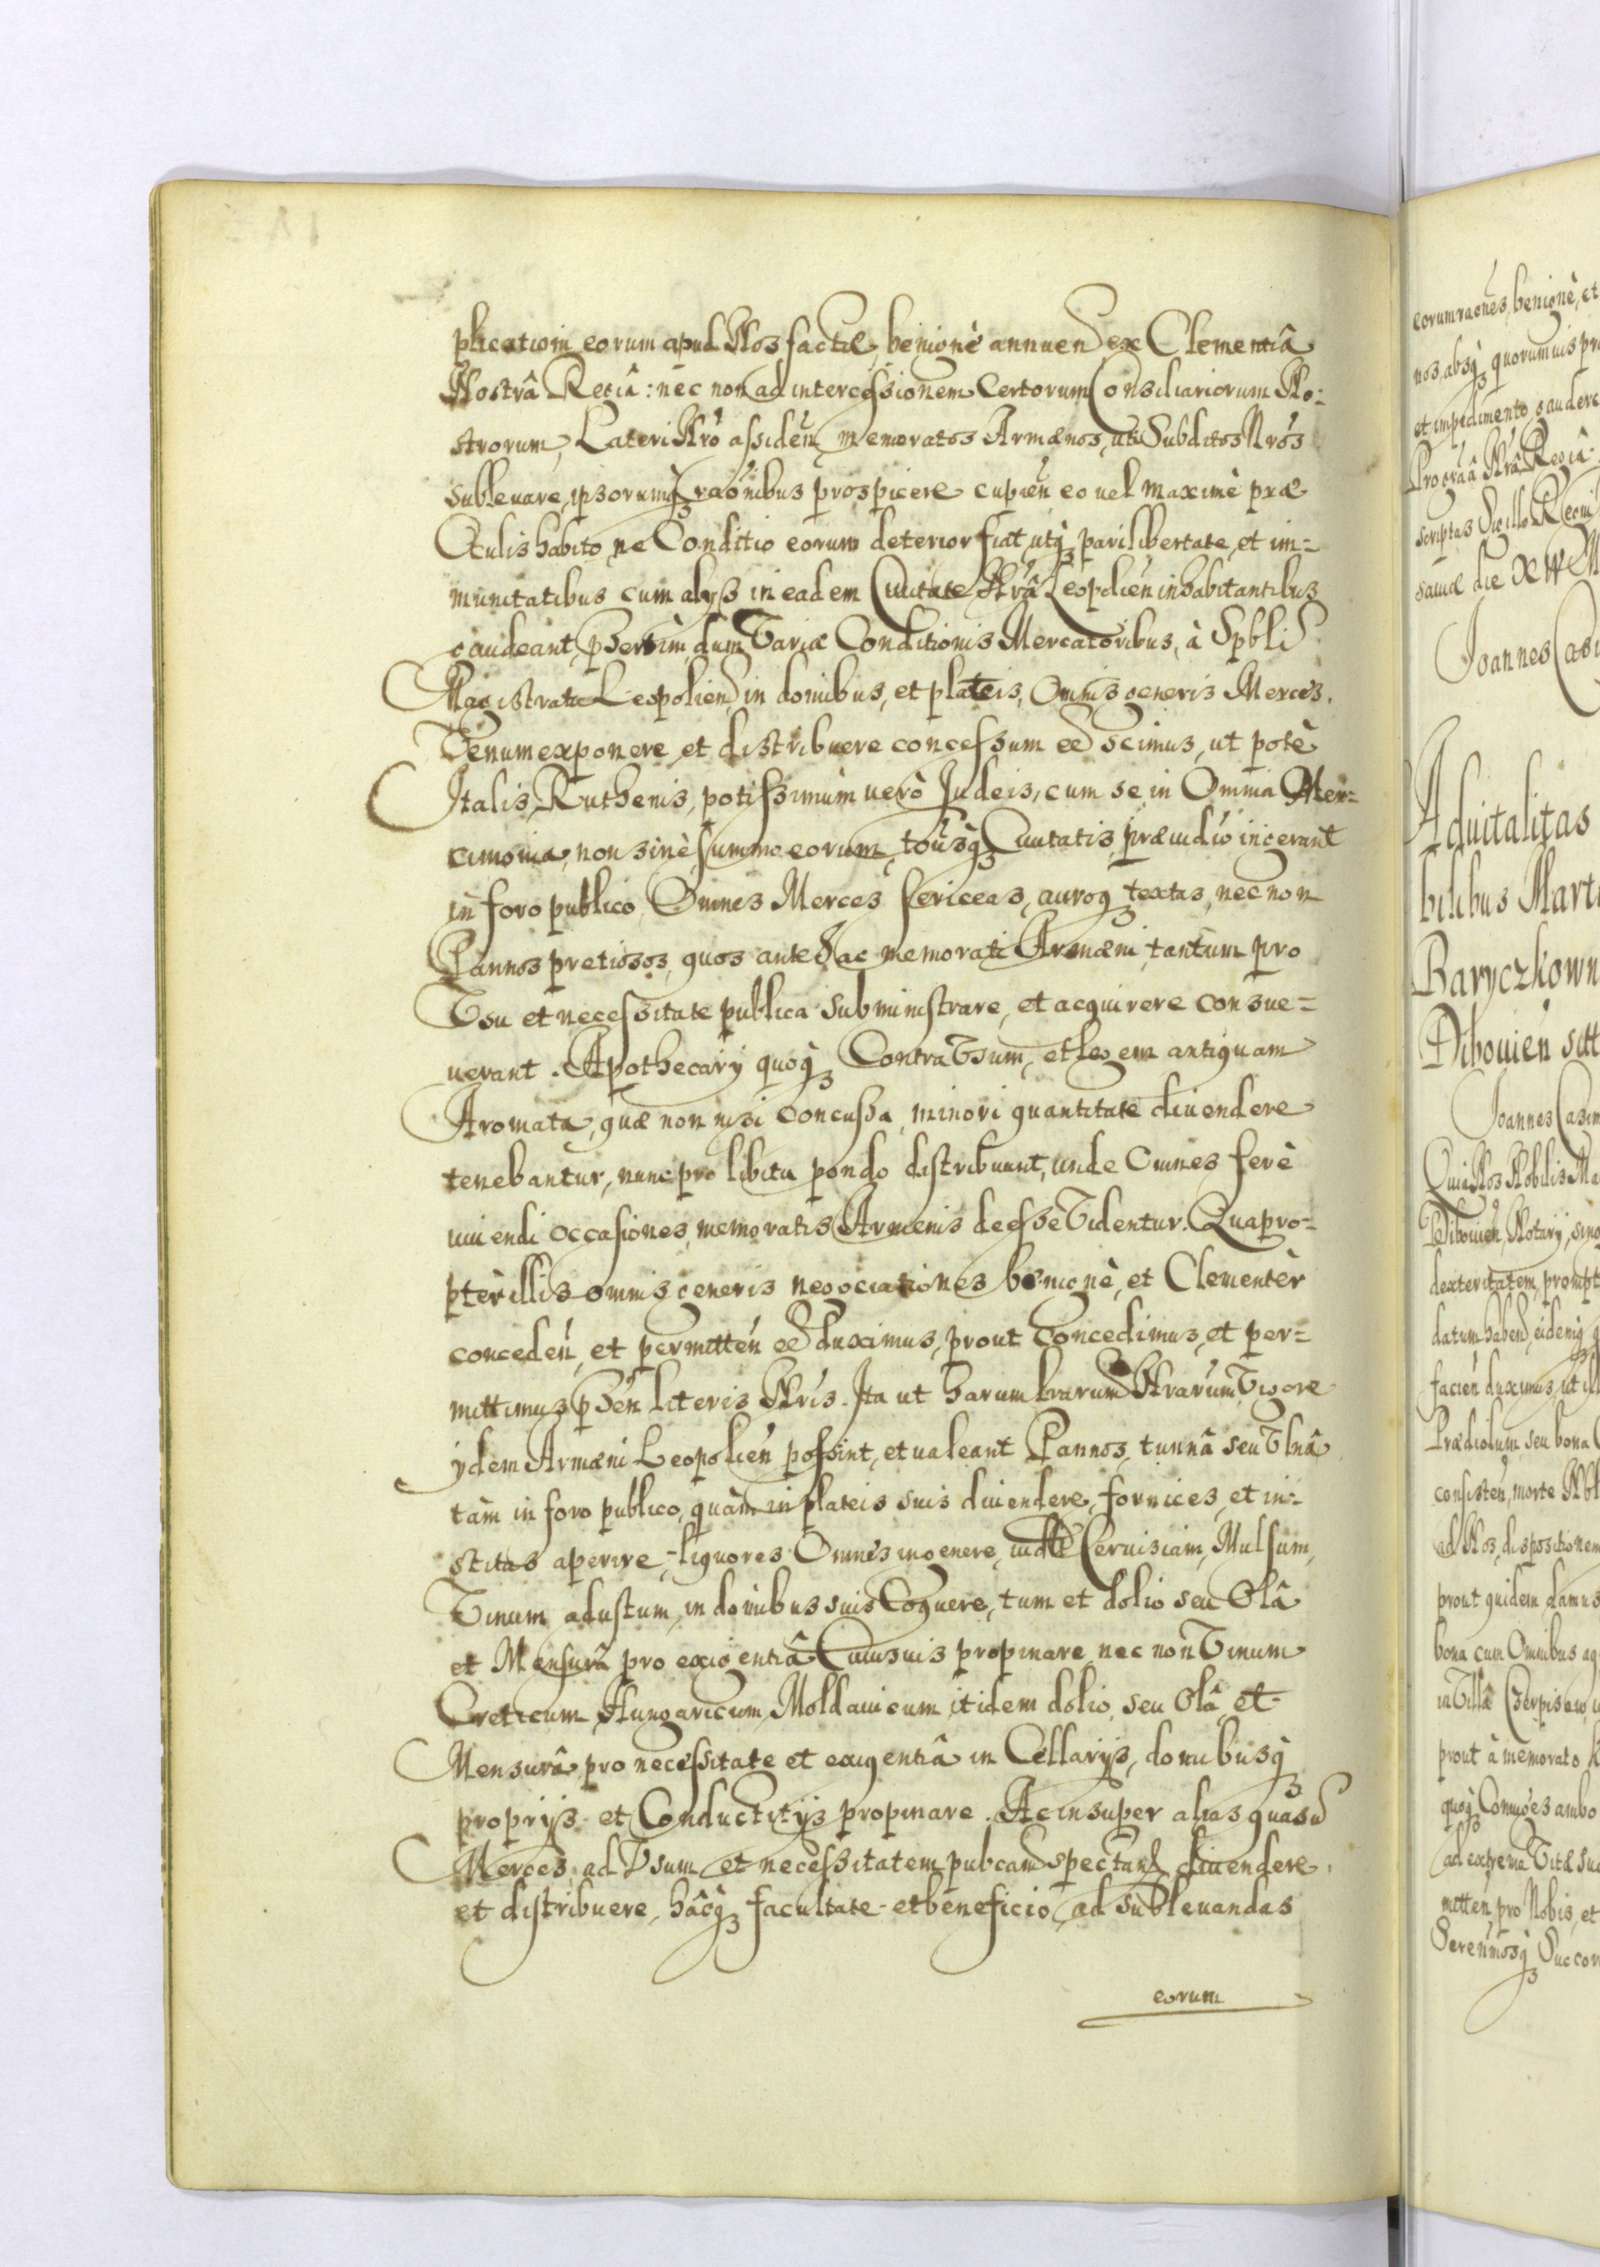 plicationi eorum apud Nos factae, benignè annuen ex Clementiâ
Nostrâ Regiâ: nec non ad intercessionem Certorum Consiliariorum No=
strorum, Lateri Nrô assiden memoratos Armaenos, uti Subditos Nrós
subleuare, ipsorumq raonibus prospicere cupien eo uel maximè prae
Oculis habito, ne Conditio eorum deterior fiat, utq pari libertate, et im=
munitatibus cum alijs in eadem Ciuitate Nrâ Leopolien inhabitantibus
gaudeant, psertim, dum Variae Conditionis Mercatoribus, à Spbli
Magistratu Leopolien in domibus, et plateis, Omnis generis Merces.
Venum exponere et distribuere concessum ee scimus, ut potè
Italis, Ruthenis, potissimùm uerò Judeis, cum se in Omnia Mer=
cimonia, non sinè summo eorum, tousq Ciuitatis, praeiudio ingerant
in foro publico Omnes Merces sericeas, auroq textas, nec non
Pannos pretiosos, quos antehac memorati Armaeni, tantum pro
Vsu et necessitate publica subministrare, et acquirere consue=
uerant. Apothecarij quoq Contra Vsum, et legem antiquam
Aromata, quae non nisi concussa, minori quantitate diuendere
tenebantur, nunc pro libitu pondo distribuunt, unde Omnes ferè
uiuendi occasiones, memoratis Armenis deesse Videntur. Quapro=
ptèr illis omnis generis negociationes benignè, et Clementèr
conceden, et permitten ee duximus, prout Concedimus, et per=
mittimus psen literis Nris. Ita ut harum lrarum Nrarum Vigore
ydem Armaeni Leopolien possint, et ualeant Pannos, tunnâ seu Vlnâ
tàm in foro publico, quàm in plateis suis diuendere, fornices, et in=
stitas aperire, liquores Omnes in genere, uidte Ceruisiam, Mulsum,
Vinum adustum, in domibus suis Coquere, tum et dolio seu Ollâ
et Mensurâ pro exigentiâ Cuiusuis propinare, nec non Vinum
Creticum, Hungaricum, Moldauicum, itidem dolio, seu Ollâ, et
Mensurâ pro necessitate et exigentiâ in Cellarijs, domibusq
proprijs et Conductitijs propinare. Ac insuper alias quasuis
Merces, ad Vsum et necessitatem pubcam spectan, diuendere
et distribuere, hâcq facultate et beneficio, ad subleuandas
eorum
eorum raones, benignè, et
nos, absq quorumuis
et impedimento gaudere
Nrâ Regiâ
scriptas Sigillo Regni
die
Joannes Casi
Aduitalitas
bilibus Marti
Baryczkown
Dibouien
Joannes Casim
Quia Nos Nobilis Ma
Dibouien, Notarij, sing
dexteritatem, prompt
datum haben, eidemq
facien duximus, ut ill
Praediolum, seu bona
consisten, morte Nbl
ad Nos, dispositionem
prout quidem damus
bona cum Omnibus ag
in Villâ
prout à memorato
quoq Coniuges ambo
ad extrema Vitae sua
mitten pro Nobis, et
Serenmosq Succor